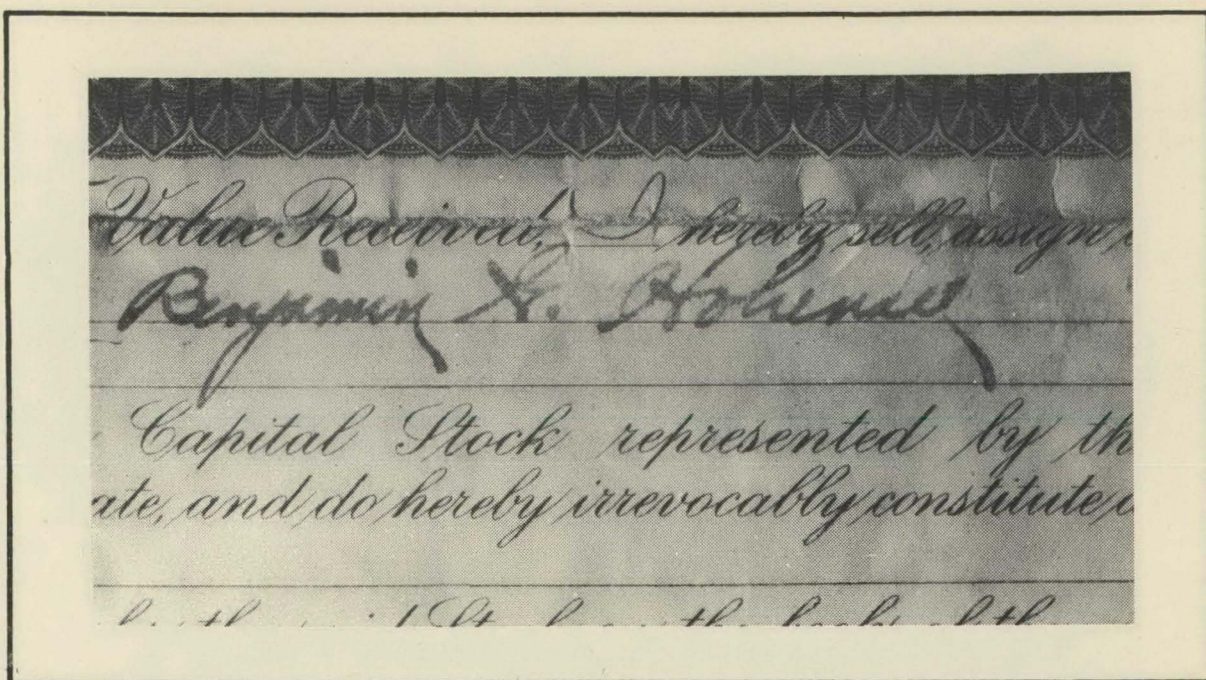 Value Received, I hereby sell, assign
Benjamin
Capital Stock represented by th
ate, and do hereby irrevocably constitute